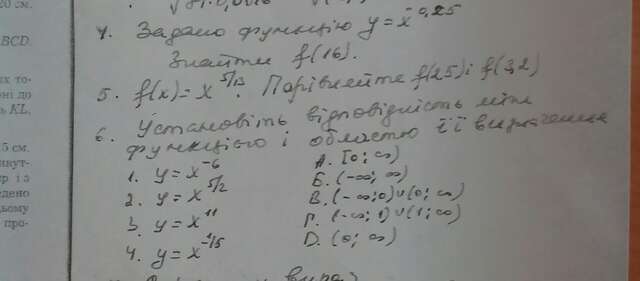 20 см.
BCD.
их то-
ні до
ь KL,
5 см.
инут-
р і з
едено
цьому
про-
4. Задано функцію y = x^-0,25
Знайти f(16).
5. f(x) = x^5/13. Порівняйте f(2,5) і f(3,2)
6. Установіть відповідність між
функцією і областю її визначення
1. y = x^-6
2. y = x^5/2
3. y = x^11
4. y = x^-1/5
А. [0; ∞)
Б. (-∞; ∞)
В. (-∞; 0)∪(0; ∞)
Г. (-∞; 1)∪(1; ∞)
D. (0; ∞)